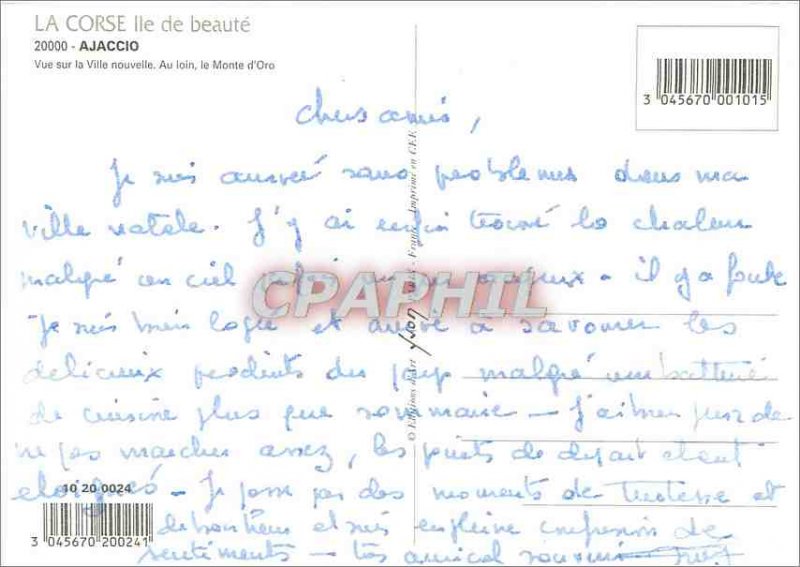 LA CORSE Ile de beauté
20000 - AJACCIO
Vue sur la Ville nouvelle. Au loin, le Monte d'Oro
3 045670 001015
Chers amis,
Je suis arrivé sans problemes dans ma
ville natale. J'y ai enfin trouvé la chaleur
malgré un ciel orageux - il y a foule
CPAPHIL
Je suis bien logé et arrive a savourer les
delicieux produits du pays malgré une batterie
de cuisine plus que sommaire - J'ai bien peur de
ne pas marcher assez, les points de depart etant
eloignés - Je passe par des moments de tristesse et
10 20 0024
de bonheur et suis en pleine confusion de
3 045670 200241
sentiments - très amical souvenir
© Editions d'Art Yvon France Imprimé en C.E.E.